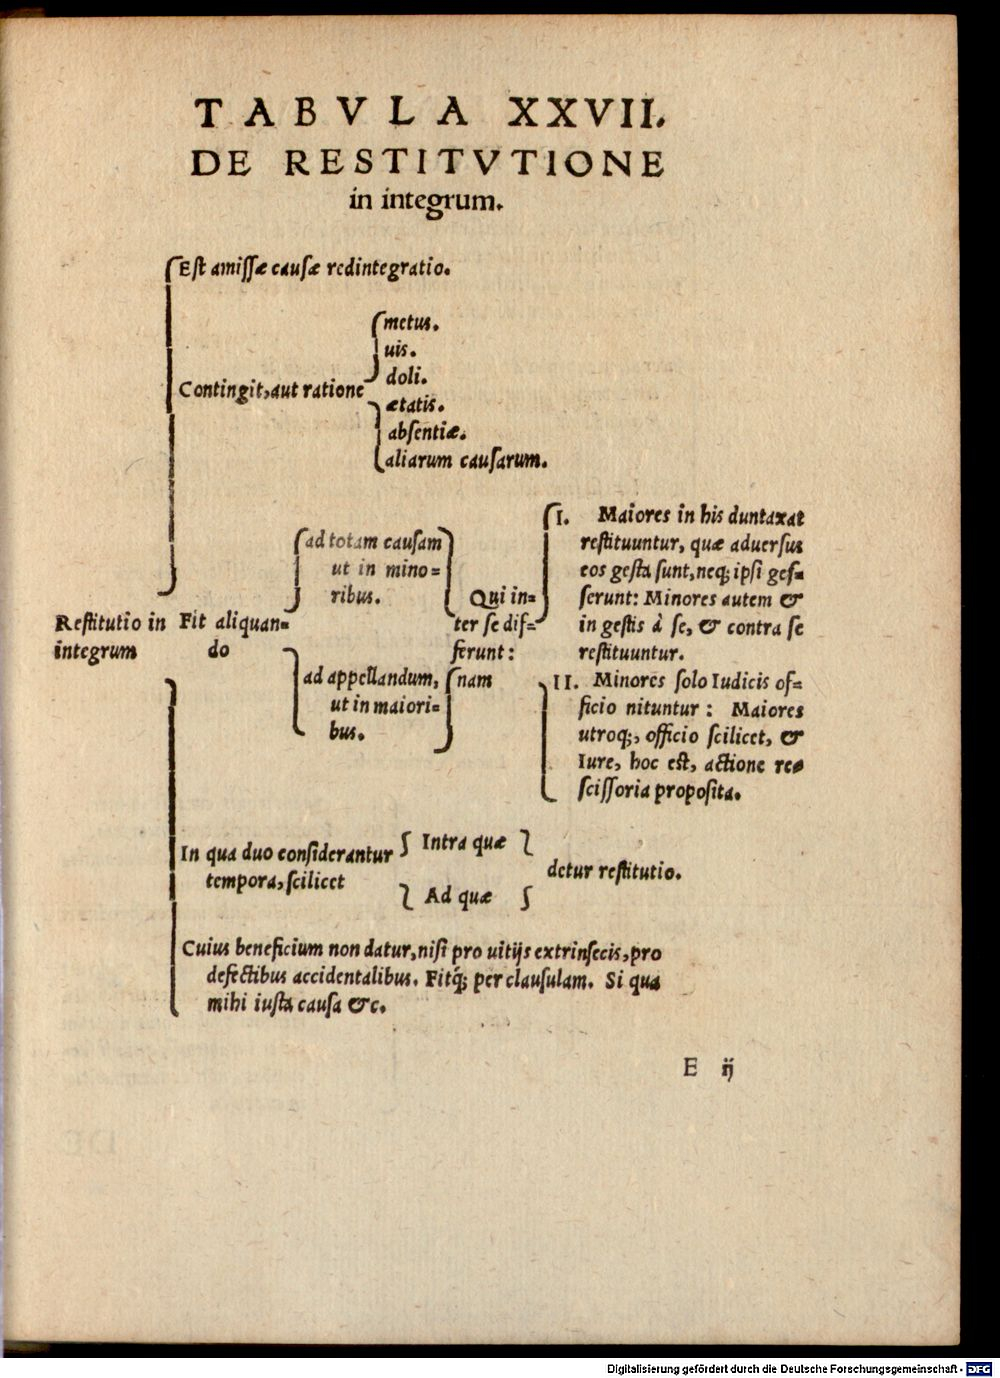 TABVLA XXVII.
DE RESTITVTIONE
in integrum.
Est amissæ causæ redintegratio.
Contingit, aut ratione
metus.
uis.
doli.
ætatis.
absentiæ.
aliarum causarum.
Restitutio in
integrum
Fit aliquan=
do
ad totam causam
ut in mino=
ribus.
ad appellandum,
ut in maiori=
bus.
Qui in=
ter se dif=
ferunt:
nam
I. Maiores in his duntaxat
restituuntur, quæ aduersus
eos gesta sunt, neq; ipsi ges=
serunt: Minores autem &
in gestis à se, & contra se
restituuntur.
II. Minores solo Iudicis of=
ficio nituntur: Maiores
utroq;, officio scilicet, &
Iure, hoc est, actione re=
scissoria proposita.
In qua duo considerantur
tempora, scilicet
Intra quæ
Ad quæ
detur restitutio.
Cuius beneficium non datur, nisi pro uitijs extrinsecis, pro
defectibus accidentalibus. Fitq́; per clausulam. Si qua
mihi iusta causa &c.
E ij
Digitalisierung gefördert durch die Deutsche Forschungsgemeinschaft - DFG